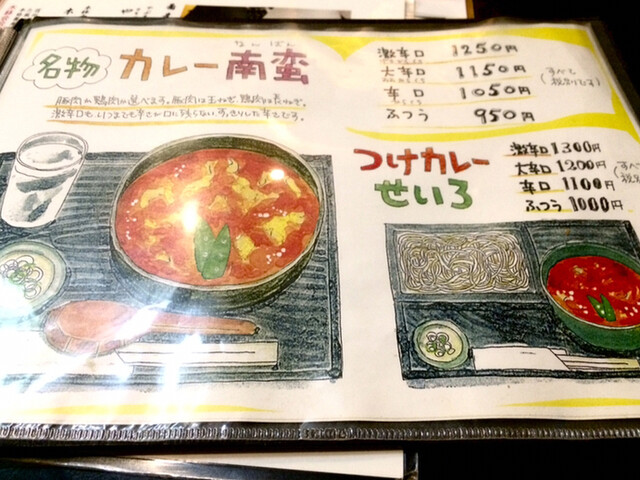 名物 カレー南蛮
なんばん
豚肉か鶏肉か選べます。豚肉は玉ねぎ、鶏肉は長ねぎ。
激辛口も、いつまでも辛さが口に残らない、すっきりした辛さです。
激辛口 1250円
大辛口 1150円
辛口 1050円
ふつう 950円
(すべて税別です)
つけカレー
せいろ
激辛口 1300円
大辛口 1200円
辛口 1100円
ふつう 1000円
(すべて
税別